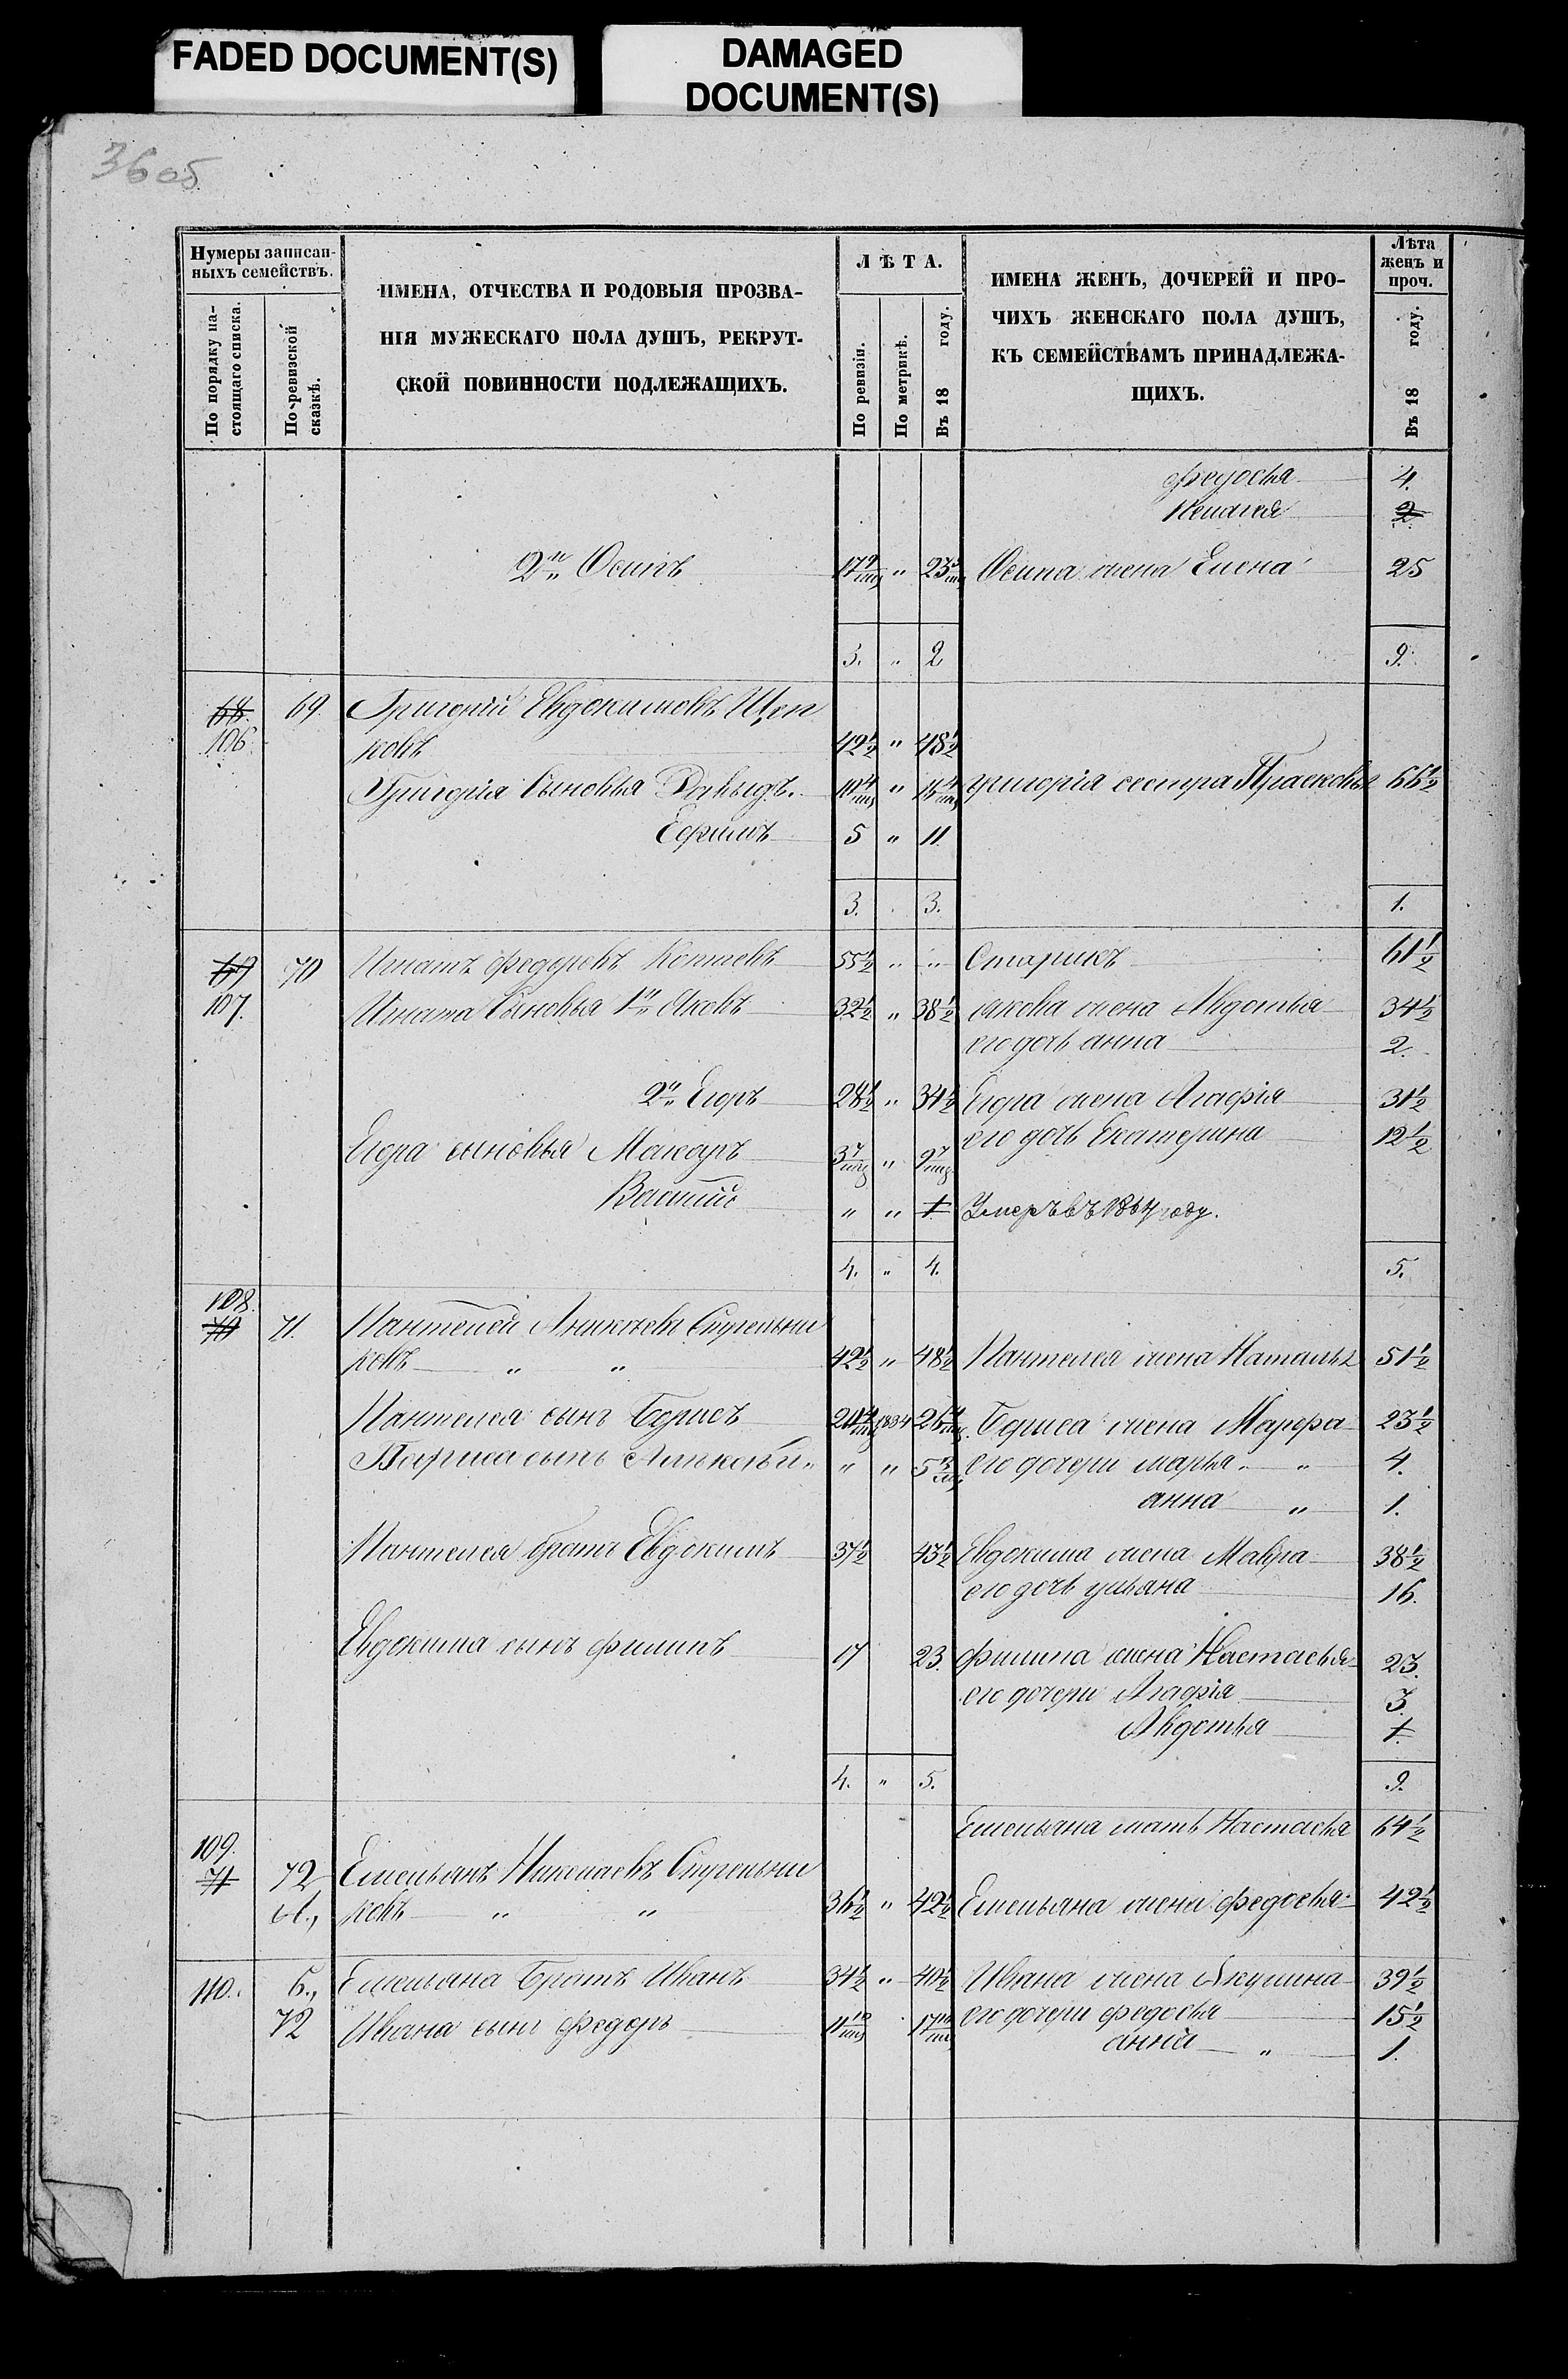 FADED DOCUMENT(S)
DAMAGED
DOCUMENT(S)
36 об
Нумеры записан-
ныхъ семействъ.
По порядку на-
стоящаго списка.
По ревизской
сказкѣ.
ИМЕНА, ОТЧЕСТВА И РОДОВЫЯ ПРОЗВА-
НІЯ МУЖЕСКАГО ПОЛА ДУШЪ, РЕКРУТ-
СКОЙ ПОВИННОСТИ ПОДЛЕЖАЩИХЪ.
ЛѢТА.
По ревизіи.
По метрикѣ.
Въ 18 году.
ИМЕНА ЖЕНЪ, ДОЧЕРЕЙ И ПРО-
ЧИХЪ ЖЕНСКАГО ПОЛА ДУШЪ,
КЪ СЕМЕЙСТВАМЪ ПРИНАДЛЕЖА-
ЩИХЪ.
Лѣта
женъ и
проч.
Въ 18 году.
Федосья 4.
Пелагея 2
2й Осипъ 17 9/мц " 23 9/мц Осипа жена Елена 25
3. " 2 9.
68. 69. Григорій Евдокимовъ Щел
106. ковъ 42½ " 48½
Григорія сыновья Давыдъ 10 4/мц " 16 4/мц григорія сестра Прасковья 66½
Ефимъ 5 " 11
3. 3. 1.
69 70 Игнатъ Федоровъ 55½ " " Старикъ 61½
107. Игната сыновья 1й Яковъ 32½ " 38½ якова жена Авдотья 34½
его дочь анна 2.
2й Егоръ 28½ " 34½ Егора жена Агафія 31½
его дочь Екатерина 12½
Егора сыновья Макаръ 3 7/мц " 9 7/мц
Василій " " 1. Умеръ въ 1864 году.
4. " 4. 5.
108.
70 71. Пантелей Аникѣевъ Стрельни
ковъ " " 42½ " 48½ Пантелея жена Наталья 51½
Пантелея сынъ Борисъ 20 4/мц 1834 26 4/мц Бориса жена Марфа 23½
Бориса сынъ Алексѣй " " 5 3/мц его дочери марья " 4.
анна " 1.
Пантелея братъ Евдокимъ 37½ 43½ Евдокима жена Мавра 38½
его дочь ульяна 16.
Евдокима сынъ филипъ 17 23. филипа жена Настасья 23.
его дочери Агафія 3
Авдотья 1.
4. " 5. 9.
Емельяна мать Настасья 64½
109.
71 72 Емельянъ Николаевъ Стрельни
а., ковъ " " 36½ " 42½ Емельяна жена федосья 42½
110. б., Емельяна братъ Иванъ 34½ " 40½ Ивана жена Акулина 39½
72 Ивана сынъ Федоръ 11 10/мц 17 10/мц его дочери федосья 15½
анна " 1.